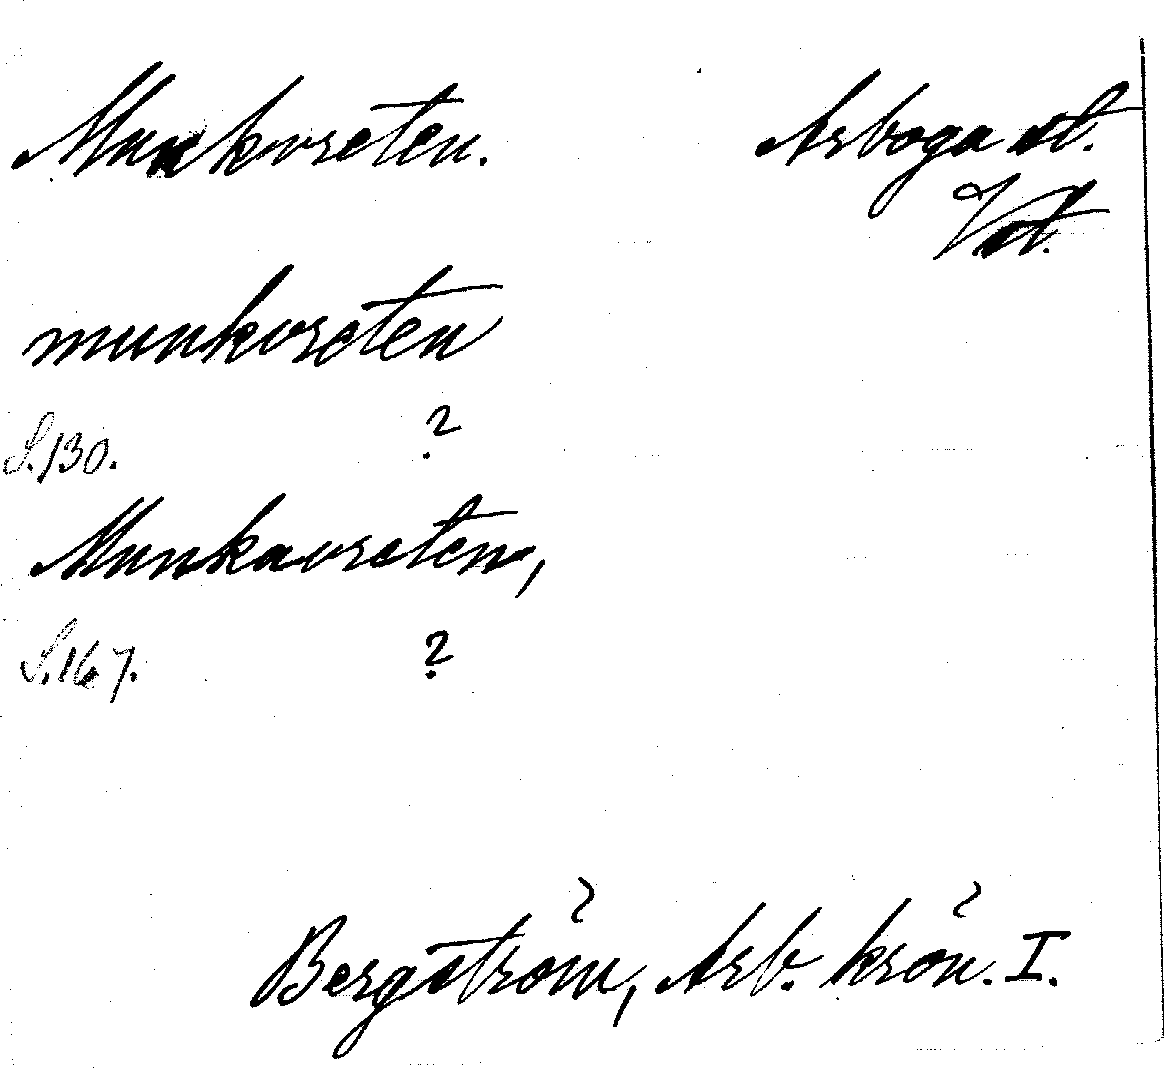 Munkvreten. Arboga st.
Vstl.
munkvreten
S.130. ?
Munkavreten,
S.167. ?
Bergström, Arb. krön. I.